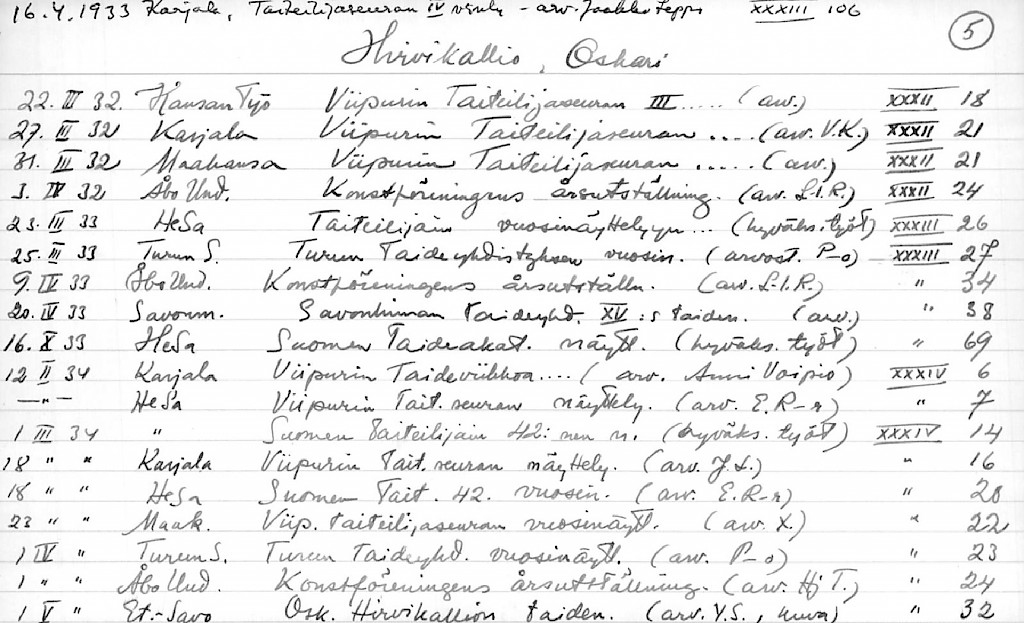 16.4.1933 Karjala, Taiteilijaseuran IV - arv. Jaakko Leppo XXXIII 106
5
Hirvikallio, Oskari
22. III 32. Kansan Työ Viipurin Taiteilijaseuran III ..... (arv.) XXXII 18
27. III 32 Karjala Viipurin Taiteilijaseuran .... (arv. V.K.) XXXII 21
31. III 32 Maakansa Viipurin Taiteilijaseuran ..... (arv.) XXXII 21
3. IV 32 Åbo Und. Konstföreningens årsutställning. (arv. L.I.R.) XXXII 24
23. III 33 HeSa Taiteilijain vuosinäyttelyyn... (hyväks. työt) XXXIII 26
25. III 33 Turun S. Turun Taideyhdistyksen vuosin. (arvost. P-o) XXXIII 27
9. IV 33 Åbo Und. Konstföreningens årsutställn. (arv. L.I.R.) " 34
20. IV 33 Savonm. Savonlinnan taideyhd. XV:s taiden. (arv.) " 38
16. X 33 HeSa Suomen Taideakat. näytt. (hyväks. työt) " 69
12 II 34 Karjala Viipurin Taideviikkoa.... (arv. Anni Voipio) XXXIV 6
—"— HeSa Viipurin Tait.seuran näyttely. (arv. E.R-r) " 7
1 III 34 " Suomen taiteilijain 42:nen n. (hyväks. työt) XXXIV 14
18 " " Karjala Viipurin Tait.seuran näyttely. (arv. J.L.) " 16
18 " " HeSa Suomen Tait. 42. vuosin. (arv. E.R-r) " 20
23 " " Maak. Viip. taiteilijaseuran vuosinäytt. (arv. X.) " 22
1 IV " Turun S. Turun Taideyhd. vuosinäytt. (arv. P-o) " 23
1 " " Åbo Und. Konstföreningens årsutställning. (arv. Hj T.) " 24
1 V " Et.-Savo Osk. Hirvikallion taiden. (arv. V.S., kuva) " 32